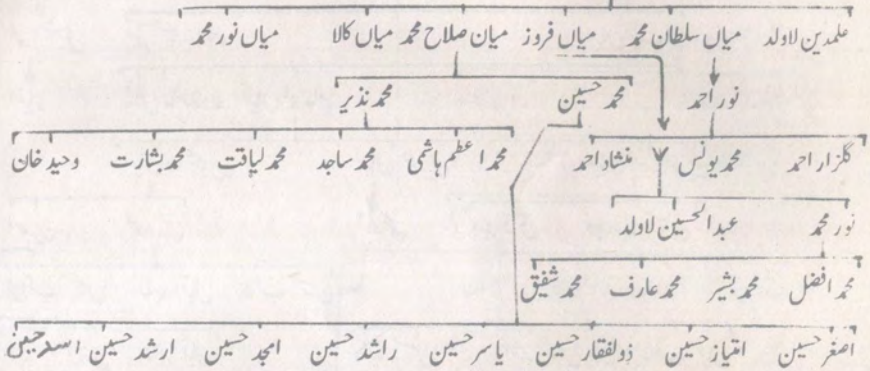 علمدین لاولد میاں سلطان محمد میاں فروز میان صلاح محمد میاں کالا میاں نور محمد
نور احمد محمد حسین محمد نذیر
گلزار احمد محمد یونس منشاد احمد محمد اعظم ہاشمی محمد ساجد محمد لیاقت محمد بشارت وحید خان
نور محمد عبدالحسین لاولد
محمد افضل محمد بشیر محمد عارف محمد شفیق
اصغر حسین امتیاز حسین ذولفقار حسین یاسر حسین راشد حسین امجد حسین ارشد حسین